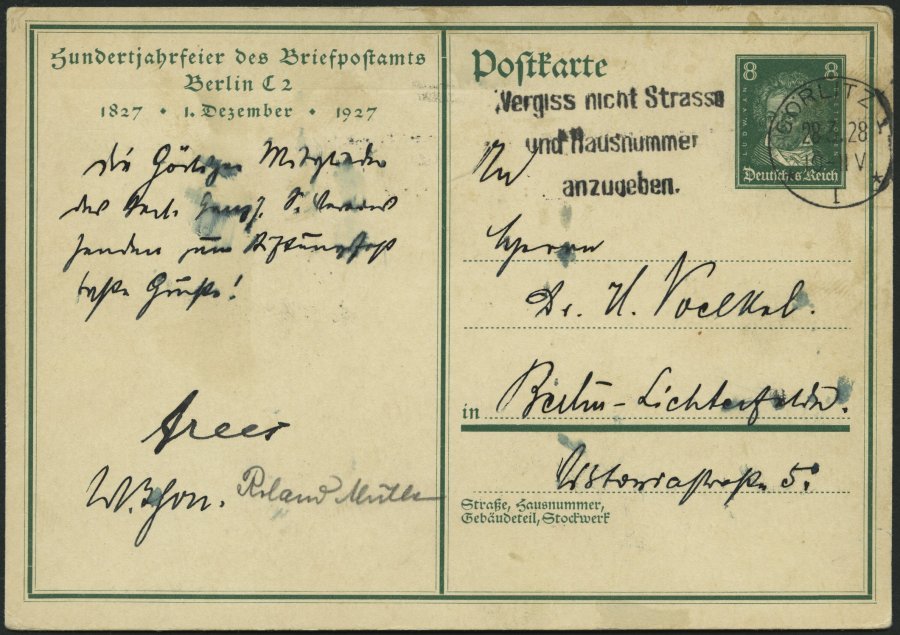 Hundertjahrfeier des Briefpostamts
Berlin C2
1827 • 1. Dezember • 1927
Die Görlitzer Mitglieder
des
senden zum Stiftungsfest
beste Grüße!
W. Thon. Roland Müller
Postkarte
Vergiss nicht Strasse
und Hausnummer
anzugeben.
8 8
LUDW. VAN
Deutsches Reich
GÖRLITZ 1
28
An
Herrn
Dr. H. Voelkel.
in Berlin-Lichterfelde.
Viktoriastraße 5.
Straße, Hausnummer,
Gebäudeteil, Stockwerk